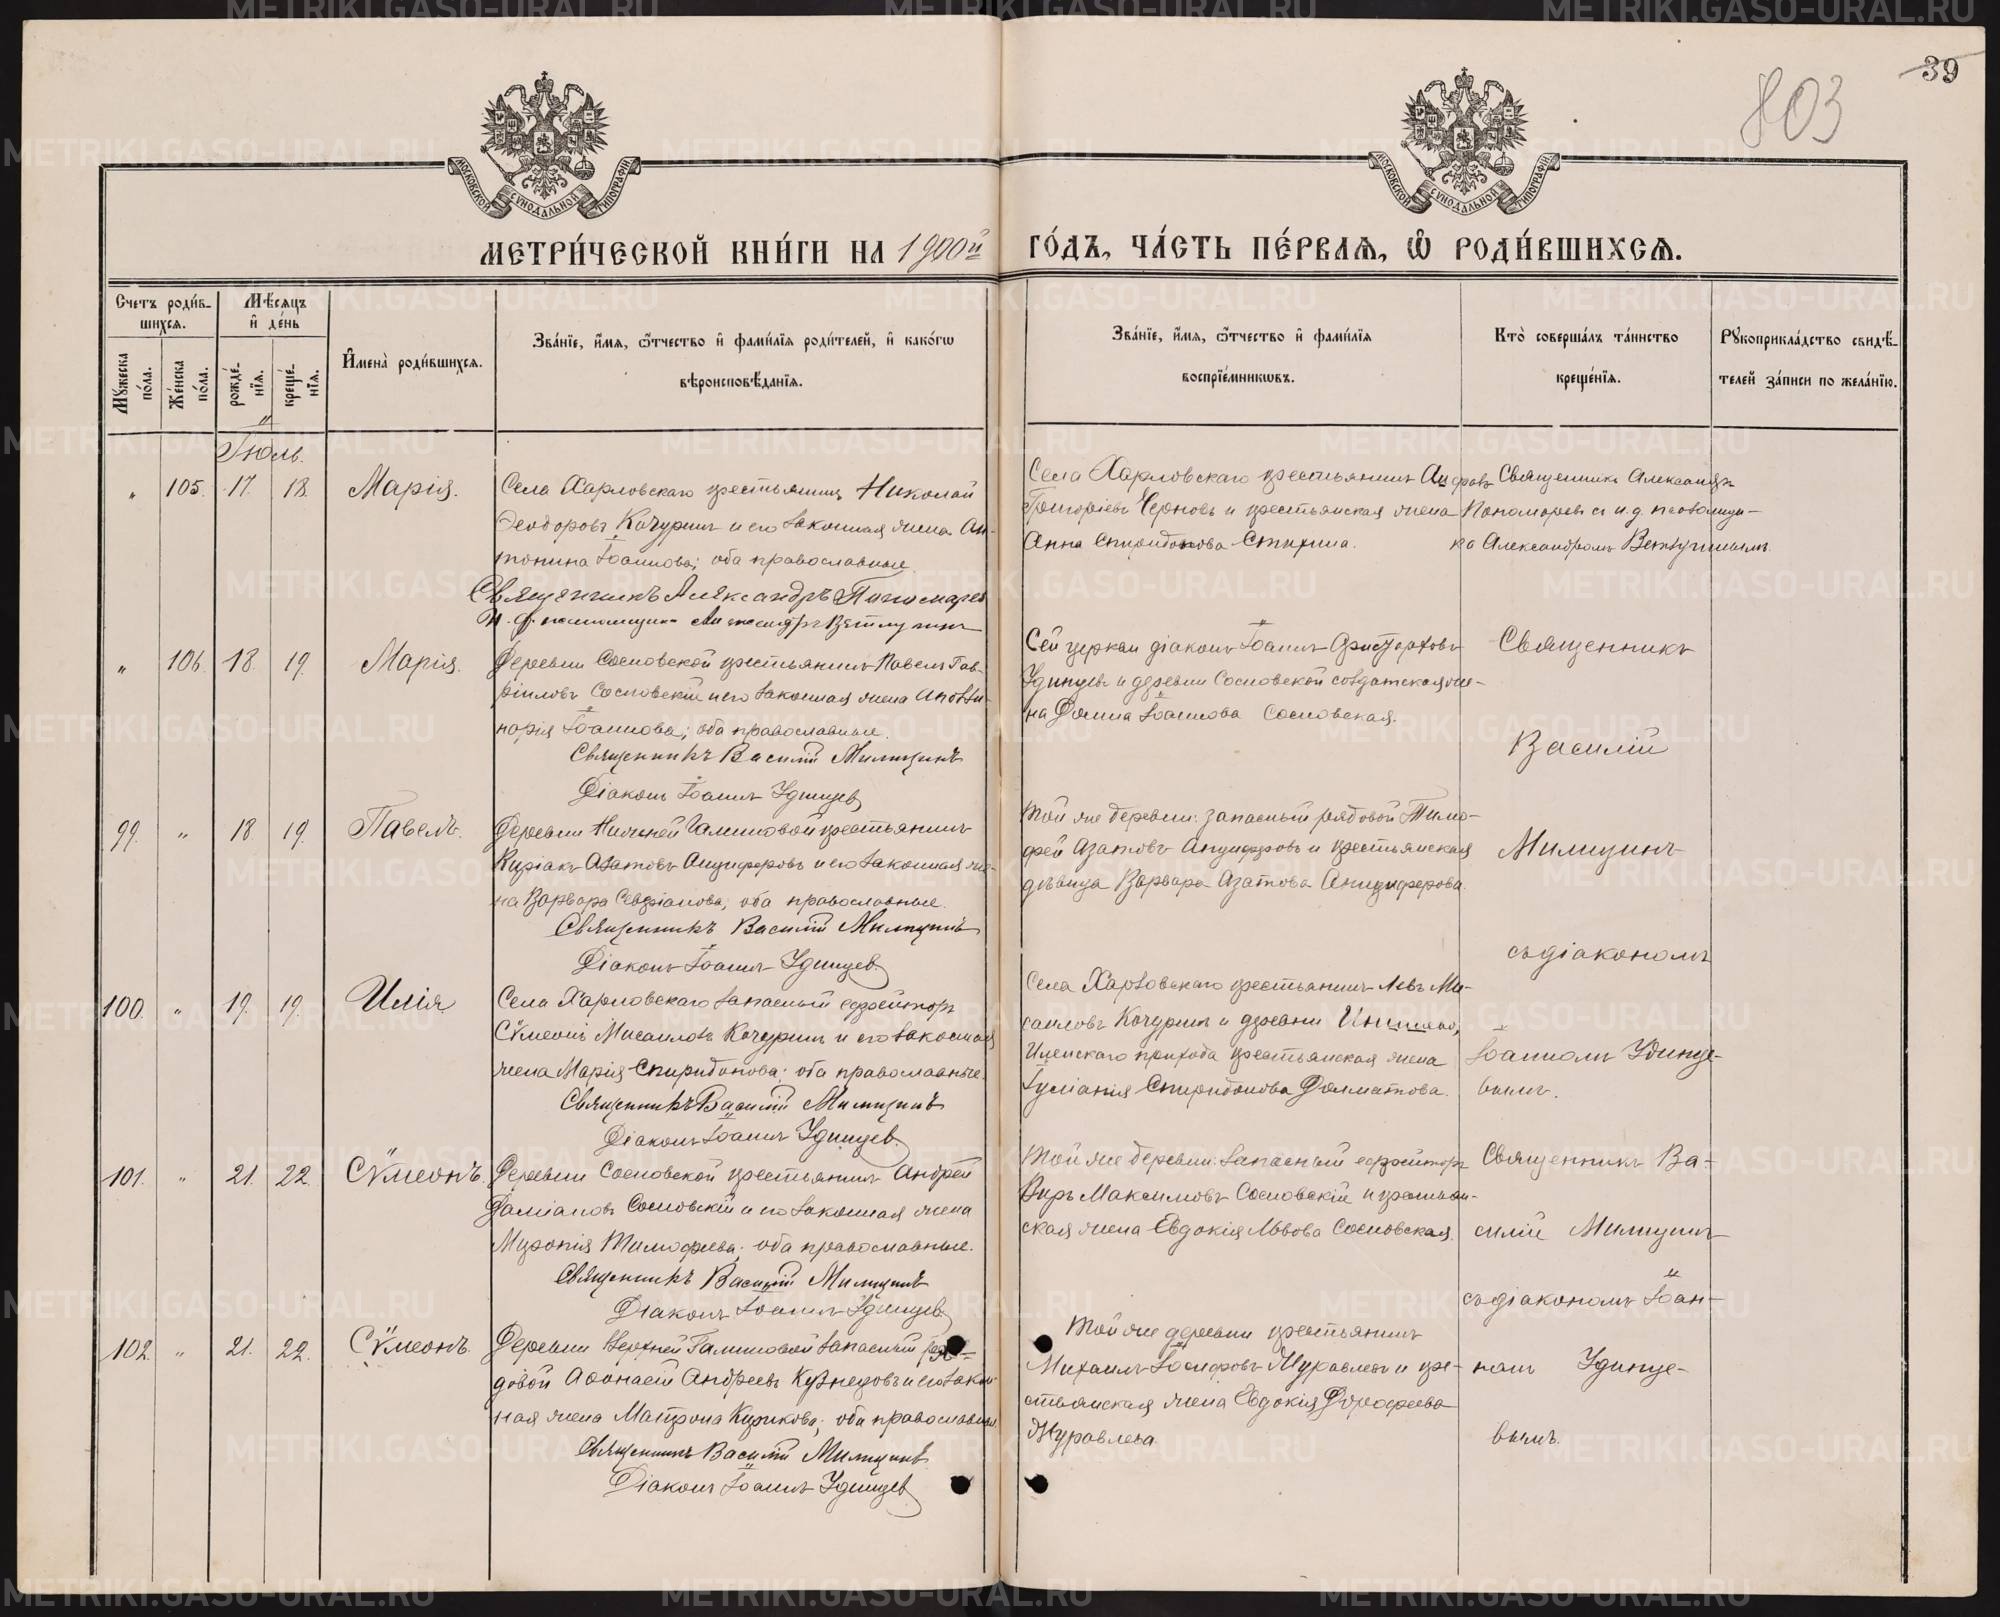 39
803
МОСКОВСКОЙ СѴНОДАЛЬНОЙ ТИПОГРАФІИ
МОСКОВСКОЙ СѴНОДАЛЬНОЙ ТИПОГРАФІИ
МЕТРИ́ЧЕСКОЙ КНИ́ГИ НА 1900й ГО́ДЪ, ЧА́СТЬ ПЕ́РВАѦ, Ѽ РОДИ́ВШИХСѦ.
Счетъ роди́в-
шихсѧ.
Мѹжеска по́ла.
Же́нска по́ла.
Мѣ́сѧцъ
и҆ де́нь
рожде́-нїѧ.
креще́-нїѧ.
И҆мена̀ роди́вшихсѧ.
Зва́нїе, и҆́мѧ, ѻ҆́тчество и҆ фами́лїѧ роди́телей, и҆ како́гѡ
вѣроисповѣ́данїѧ.
Зва́нїе, и҆́мѧ, ѻ҆́тчество и҆ фами́лїѧ
воспрїе́мникѡвъ.
Кто̀ соверша́лъ та́инство
креще́нїѧ.
Рѹкоприкла́дство свидѣ́-
телей за́писи по жела́нїю.
Іюль.
" 105. 17. 18. Марія.
Села Харловскаго крестьянинъ Николай
Ѳеодоровъ Кочуринъ и его законная жена Ан-
тонина Іоаннова; оба православные.
Священникъ Александръ Пономарев
И. д. псаломщика Александръ Ветлугинъ
Села Харловскаго крестьянинъ Андрей
Григоріевъ Черновъ и крестьянская жена
Анна Спиридонова Стихина.
Священникъ Александръ
Пономаревъ съ и. д. псаломщи-
ка Александромъ Ветлугинымъ.
" 106. 18. 19. Марія.
Деревни Сосновской крестьянинъ Павелъ Гав-
ріиловъ Сосновскій и его законная жена Аполли-
нарія Іоаннова; оба православные.
Священникъ Василій Милицинъ
Діаконъ Іоаннъ Удинцев
Сей церкви діаконъ Іоаннъ Аристарховъ
Удинцевъ и деревни Сосновской солдатская же-
на Домна Іоаннова Сосновская.
Священникъ
Василій
Милицинъ
съ діакономъ
Іоанномъ Удинце-
вымъ.
99. " 18. 19. Павелъ.
Деревни Нижней Галишовой крестьянинъ
Киріакъ Азатовъ Анциферовъ и его законная же-
на Варвара Севиріанова; оба православные.
Священникъ Василій Милицинъ
Діаконъ Іоаннъ Удинцев.
Той же деревни: запасный рядовой Тимо-
фей Азатовъ Анциферовъ и крестьянская
дѣвица Варвара Азатова Анциферова.
100. " 19. 19. Илія
Села Харловскаго запасный ефрейторъ
Сѷмеонъ Мисаиловъ Кочуринъ и его законная
жена Марія Спиридонова; оба православные.
Священникъ Василій Милицинъ
Діаконъ Іоаннъ Удинцев.
Села Харловскаго крестьянинъ Левъ Ми-
саиловъ Кочуринъ и деревни
Иленскаго прихода крестьянская жена
Іуліанія Спиридонова Долматова.
101. " 21. 22. Сѷмеонъ.
Деревни Сосновской крестьянинъ Андрей
Даміановъ Сосновскій и его законная жена
Муропія Тимофеева; оба православные.
Священникъ Василій Милицинъ
Діаконъ Іоаннъ Удинцев
Той же деревни: запасный ефрейторъ
Киръ Максимовъ Сосновскій и крестьян-
ская жена Евдокія Львова Сосновская.
Священникъ Ва-
силій Милицинъ
съ діакономъ Іоан-
номъ Удинце-
вымъ.
102. " 21. 22. Сѷмеонъ.
Деревни Верхней Галишовой запасный ря-
довой Аѳонасій Андреевъ Кузнецовъ и его закон-
ная жена Матрона Кирикова; оба православные.
Священникъ Василій Милицинъ
Діаконъ Іоаннъ Удинцев
Той же деревни крестьянинъ
Михаилъ Іосифовъ Журавлевъ и кре-
стьянская жена Евдокія Дорофеева
Журавлева.
METRIKI.GASO-URAL.RU